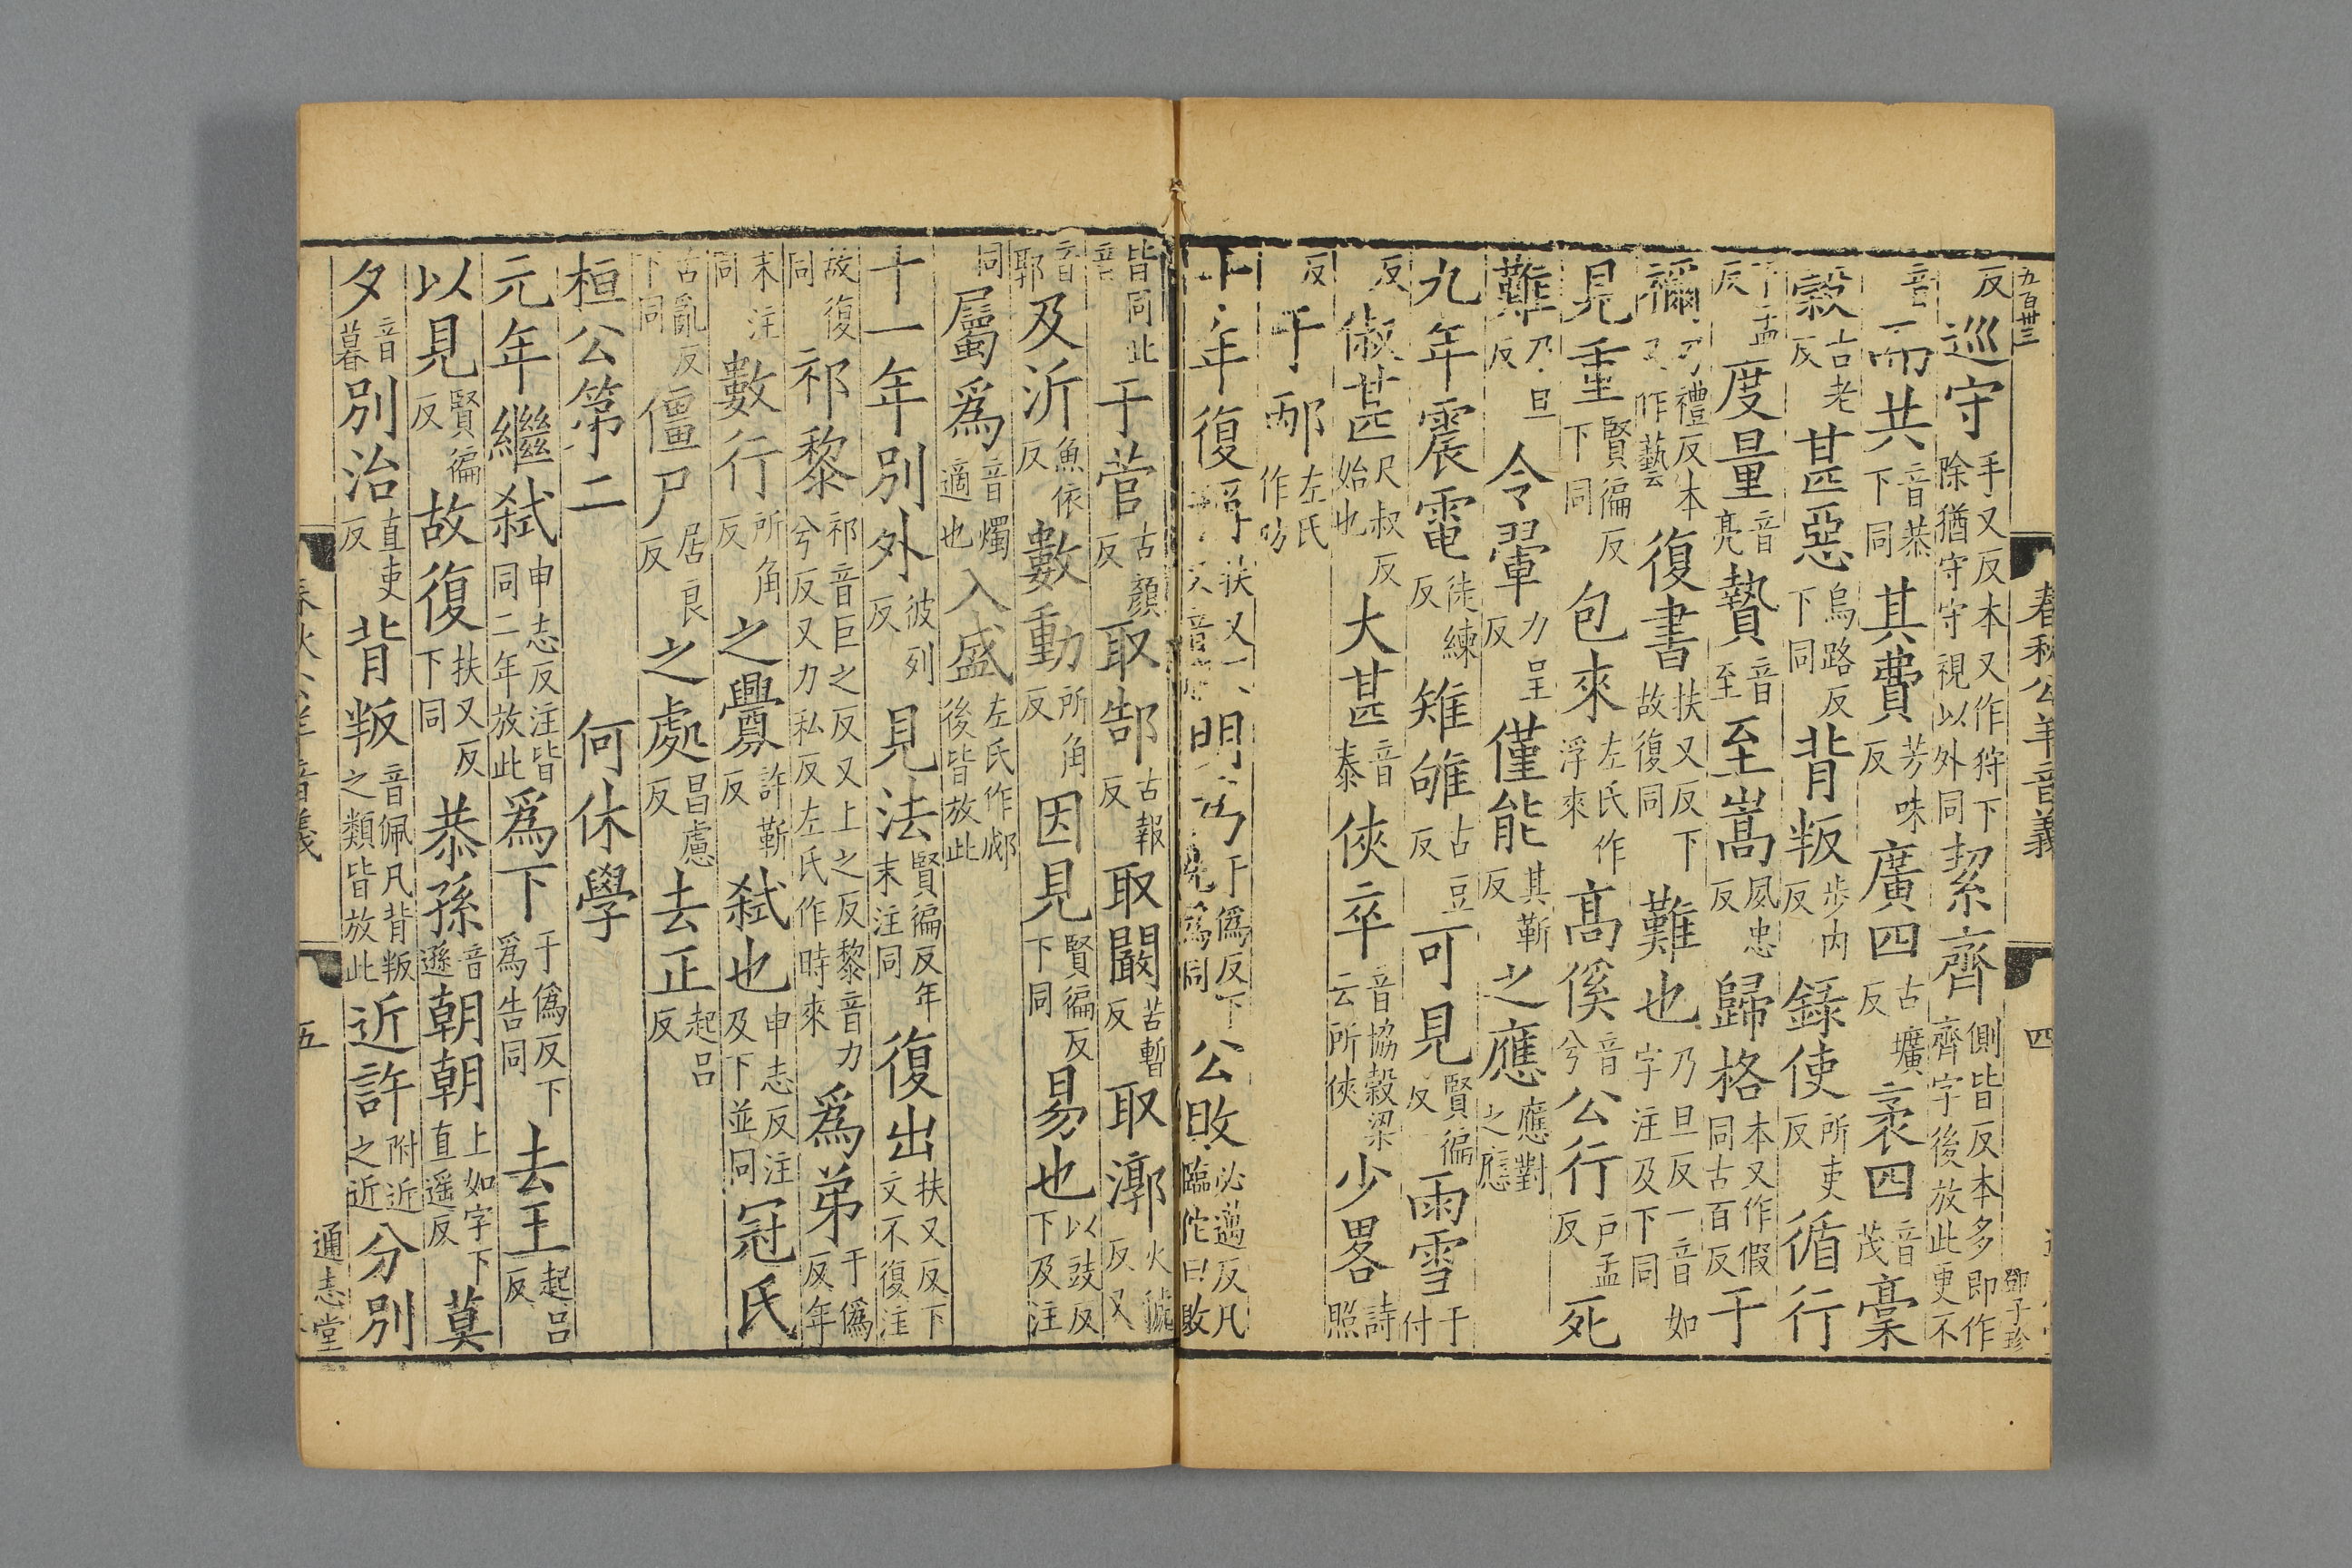 五百卅三
春秋公羊音義 四
鄧子珍
反巡守手又反本又作狩下除猶守守視以外同絜齊側皆反本多即作齊字後放此更不
音而共音恭下同其費芳味反廣四古壙反袤四音茂稾
穀古老反甚惡烏路反下同背叛步内反録使所吏反循行
下孟反度量音亮贄音至至嵩夙忠反歸格本又作假同古百反于
禰乃禮反本又作藝復書扶又反下故復同難也乃旦反一音如字注及下同
見重賢徧反下同包來左氏作浮來高傒音兮公行戸孟反死
難乃旦反令翬力呈反僅能其靳反之應應對之應
九年震電徒練反雉雊古豆反可見賢徧反雨雪于付
反俶甚尺叔反始也大甚音泰俠卒音協穀梁云所俠少畧詩照
反于邴左氏作祊
十年復扶又明于僞反下爲同公敗必邁反凡臨佗曰敗
皆同此音于菅古顔反取郜古報反取闞苦暫反取漷火虢反又
音郭及沂魚依反數動所角反因見賢徧反下同易也以豉反下及注
同屬爲音燭適也入盛左氏作郕後皆放此
十一年別外彼列反見法賢徧反年末注同復出扶又反下文不復注
故復同祁黎祁音巨之反又上之反黎音力兮反又力私反左氏作時來爲弟于僞反年
末注同數行所角反之釁許靳反弑也申志反注及下並同冠氏
古亂反下同僵尸居良反之處昌慮反去正起吕反
桓公第二 何休學
元年繼弑申志反注皆同二年放此爲下于僞反下爲告同去王起吕反
以見賢徧反故復扶又反下同恭孫音遜朝朝上如字下直遥反莫
夕音暮別治直吏反背叛音佩凡背叛之類皆放此近許附近之近分別
五
通志堂